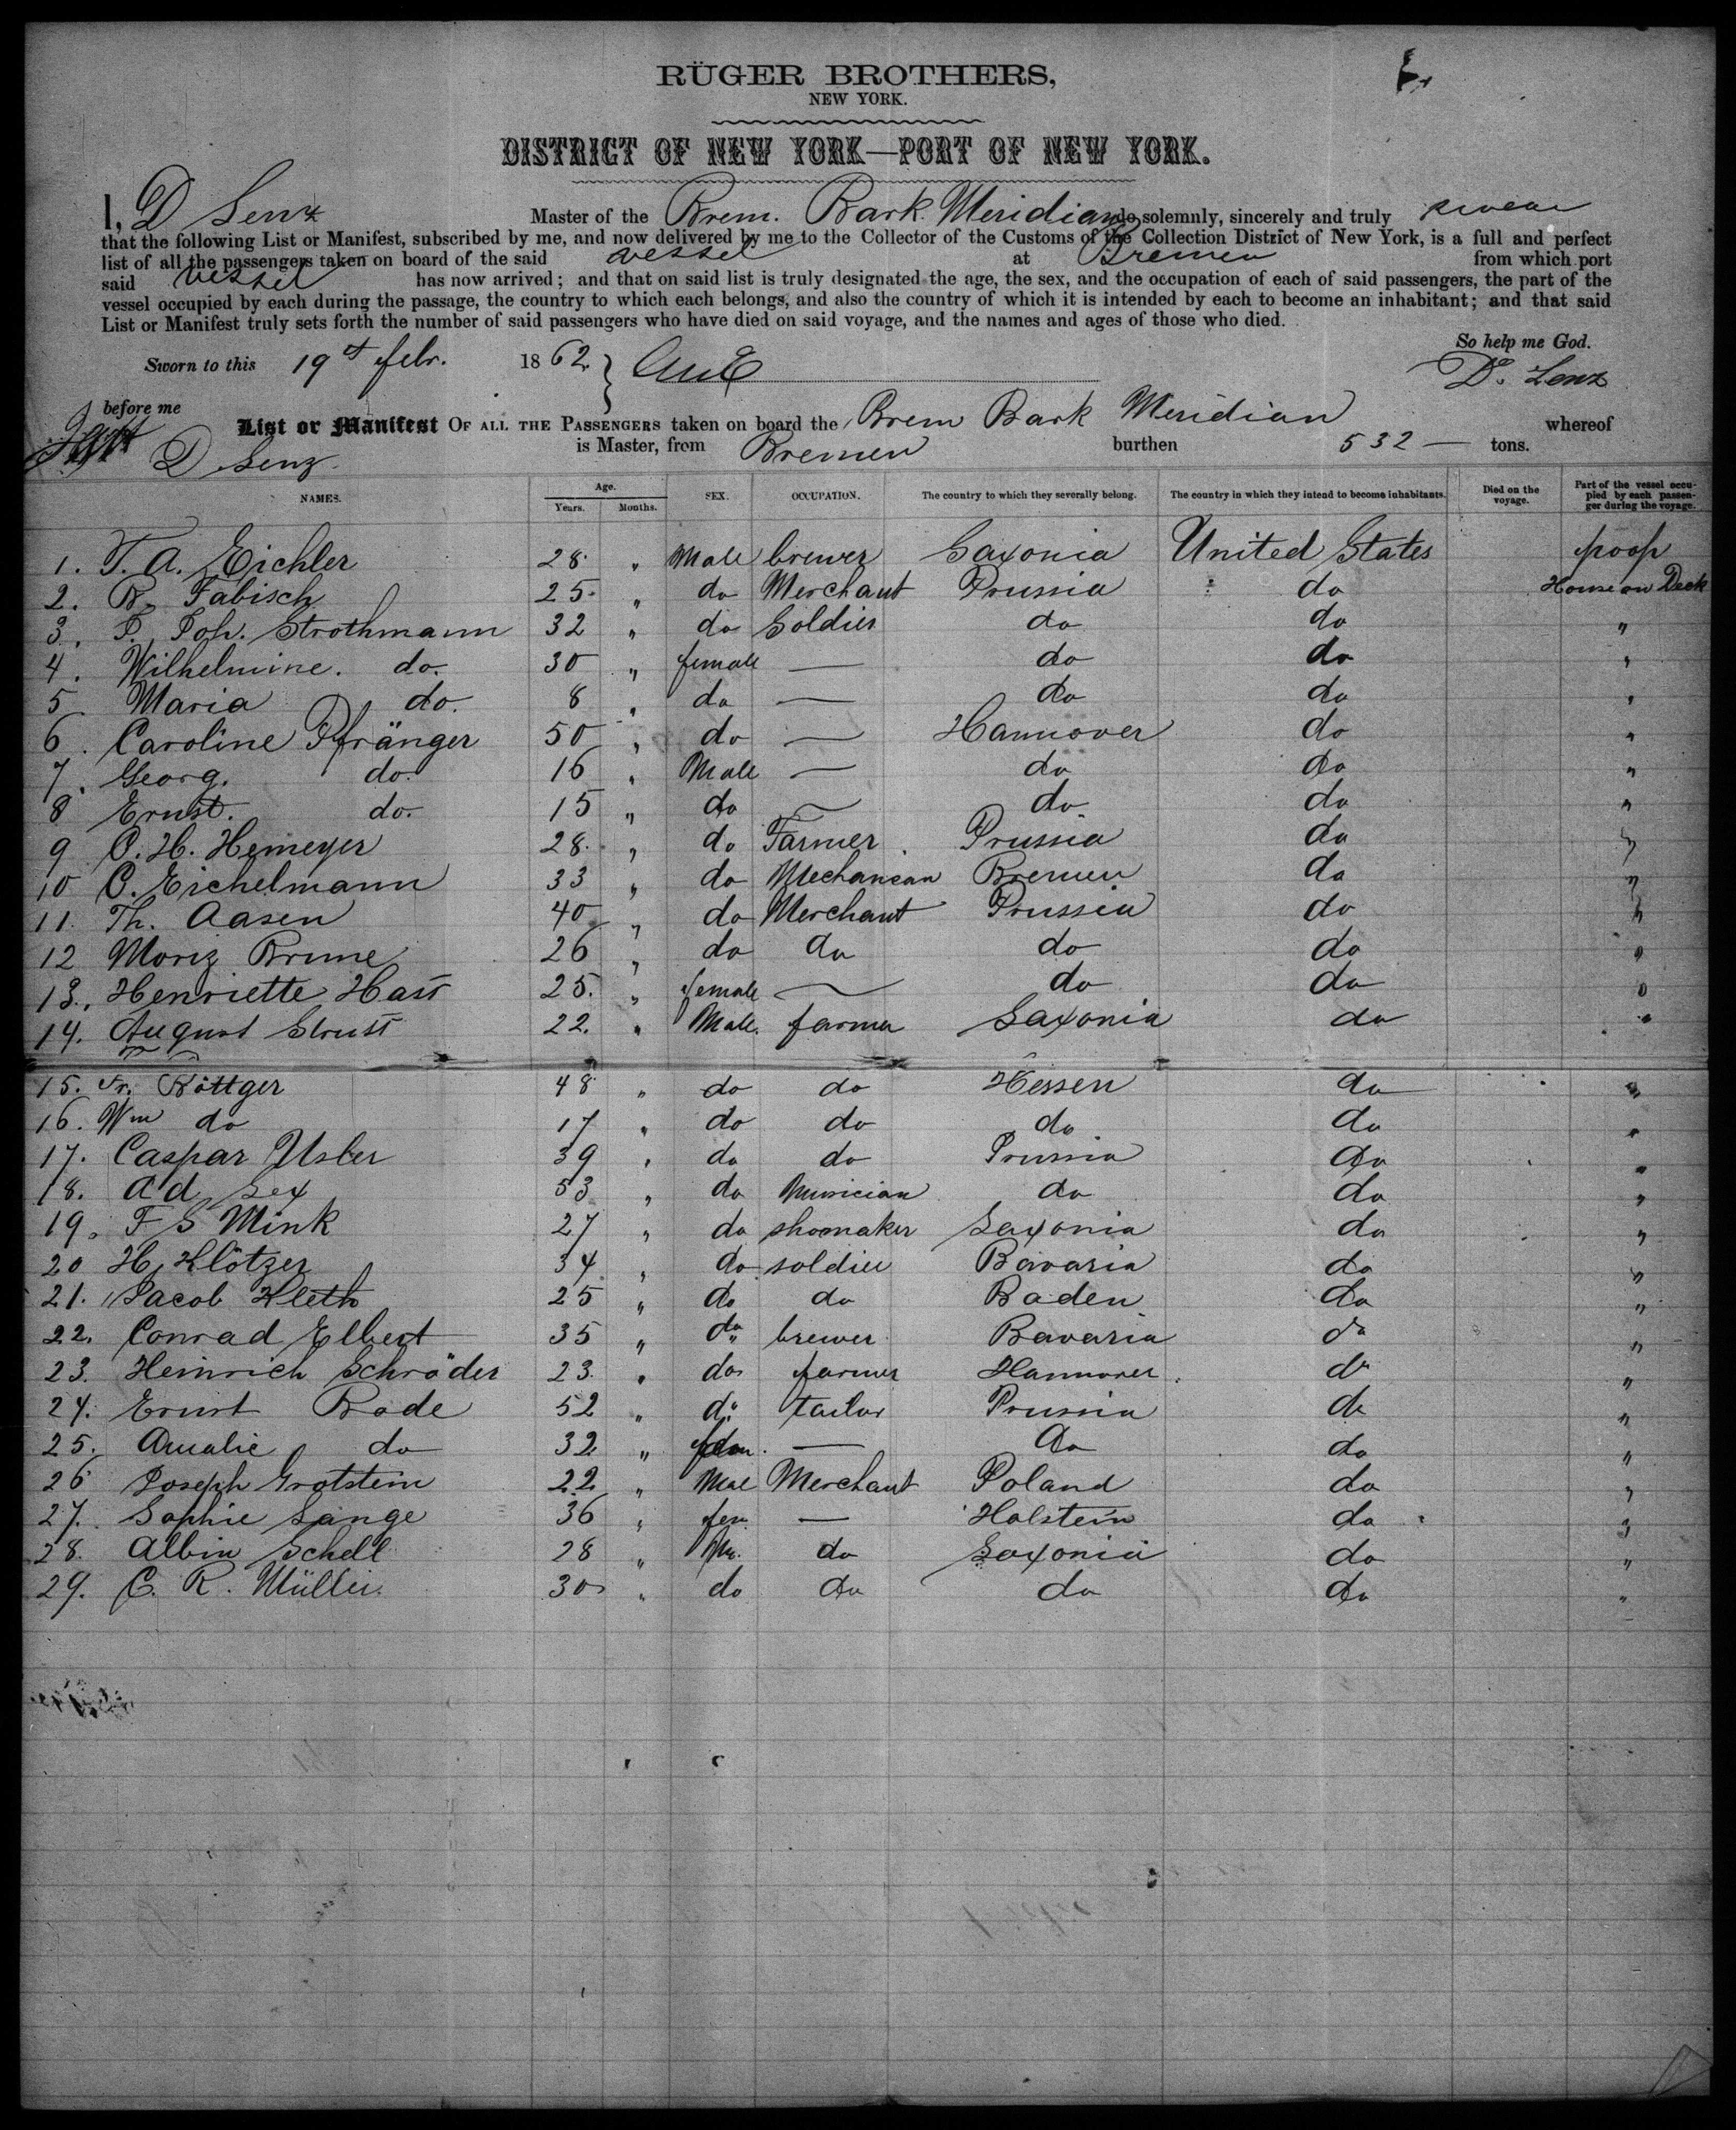 RÜGER BROTHERS,
NEW YORK.
DISTRICT OF NEW YORK—PORT OF NEW YORK.
I, D Lenz Master of the Brem. Bark Meridian do solemnly, sincerely and truly swear
that the following List or Manifest, subscribed by me, and now delivered by me to the Collector of the Customs of the Collection District of New York, is a full and perfect
list of all the passengers taken on board of the said vessel at Bremen from which port
said vessel has now arrived; and that on said list is truly designated the age, the sex, and the occupation of each of said passengers, the part of the
vessel occupied by each during the passage, the country to which each belongs, and also the country of which it is intended by each to become an inhabitant; and that said
List or Manifest truly sets forth the number of said passengers who have died on said voyage, and the names and ages of those who died.
So help me God.
Sworn to this 19t febr. 1862 D. Lenz
before me
List or Manifest OF ALL THE PASSENGERS taken on board the Brem Bark Meridian whereof
D Lenz is Master, from Bremen burthen 532 — tons.
NAMES. Age. Years. Months. SEX. OCCUPATION. The country to which they severally belong. The country in which they intend to become inhabitants. Died on the voyage. Part of the vessel occupied by each passenger during the voyage.
1. T. A. Eichler 28 " Male brewer Saxonia United States poop
2. R. Fabisch 25 " do Merchant Prussia do House on Deck
3. P. Joh. Strothmann 32 " do Soldier do do "
4. Wilhelmine. do. 30 " female — do do "
5 Maria do. 8 " do — do do "
6. Caroline Pfränger 50 " do — Hannover do "
7. Georg. do. 16 " Male — do do "
8 Ernst. do. 15 " do — do do "
9 C. H. Hemeyer 28 " do Farmer Prussia do "
10 C. Eichelmann 33 " do Mechanean Bremen do "
11. Th. Aasen 40 " do Merchant Prussia do "
12 Moriz Brune 26 " do do do do "
13. Henriette Hass 25. " female — do do "
14. August Struss 22. " Male. farmer Saxonia do "
15. Fr. Böttger 48 " do do Hessen do "
16. Wm do 17 " do do do do "
17. Caspar Usler 39 " do do Prussia do "
18. Ad Sex 53 " do Musician do do "
19. F S Mink 27 " do shoemaker Saxonia do "
20 H. Klötzer 34 " do soldier Bavaria do "
21. Jacob Kleth 25 " do do Baden do "
22. Conrad Elbert 35 " do brewer Bavaria do "
23. Heinrich Schröder 23. " do farmer Hannover do "
24. Ernst Bode 52 " do tailor Prussia do "
25. Amalie do 32 " fem. — do do "
26 Joseph Grotstein 22 " Male Merchant Poland do "
27. Sophie Lange 36 " fem. — Holstein do "
28. Albin Schell 28 " M. do Saxonia do "
29. C. R. Müller 30 " do do do do "